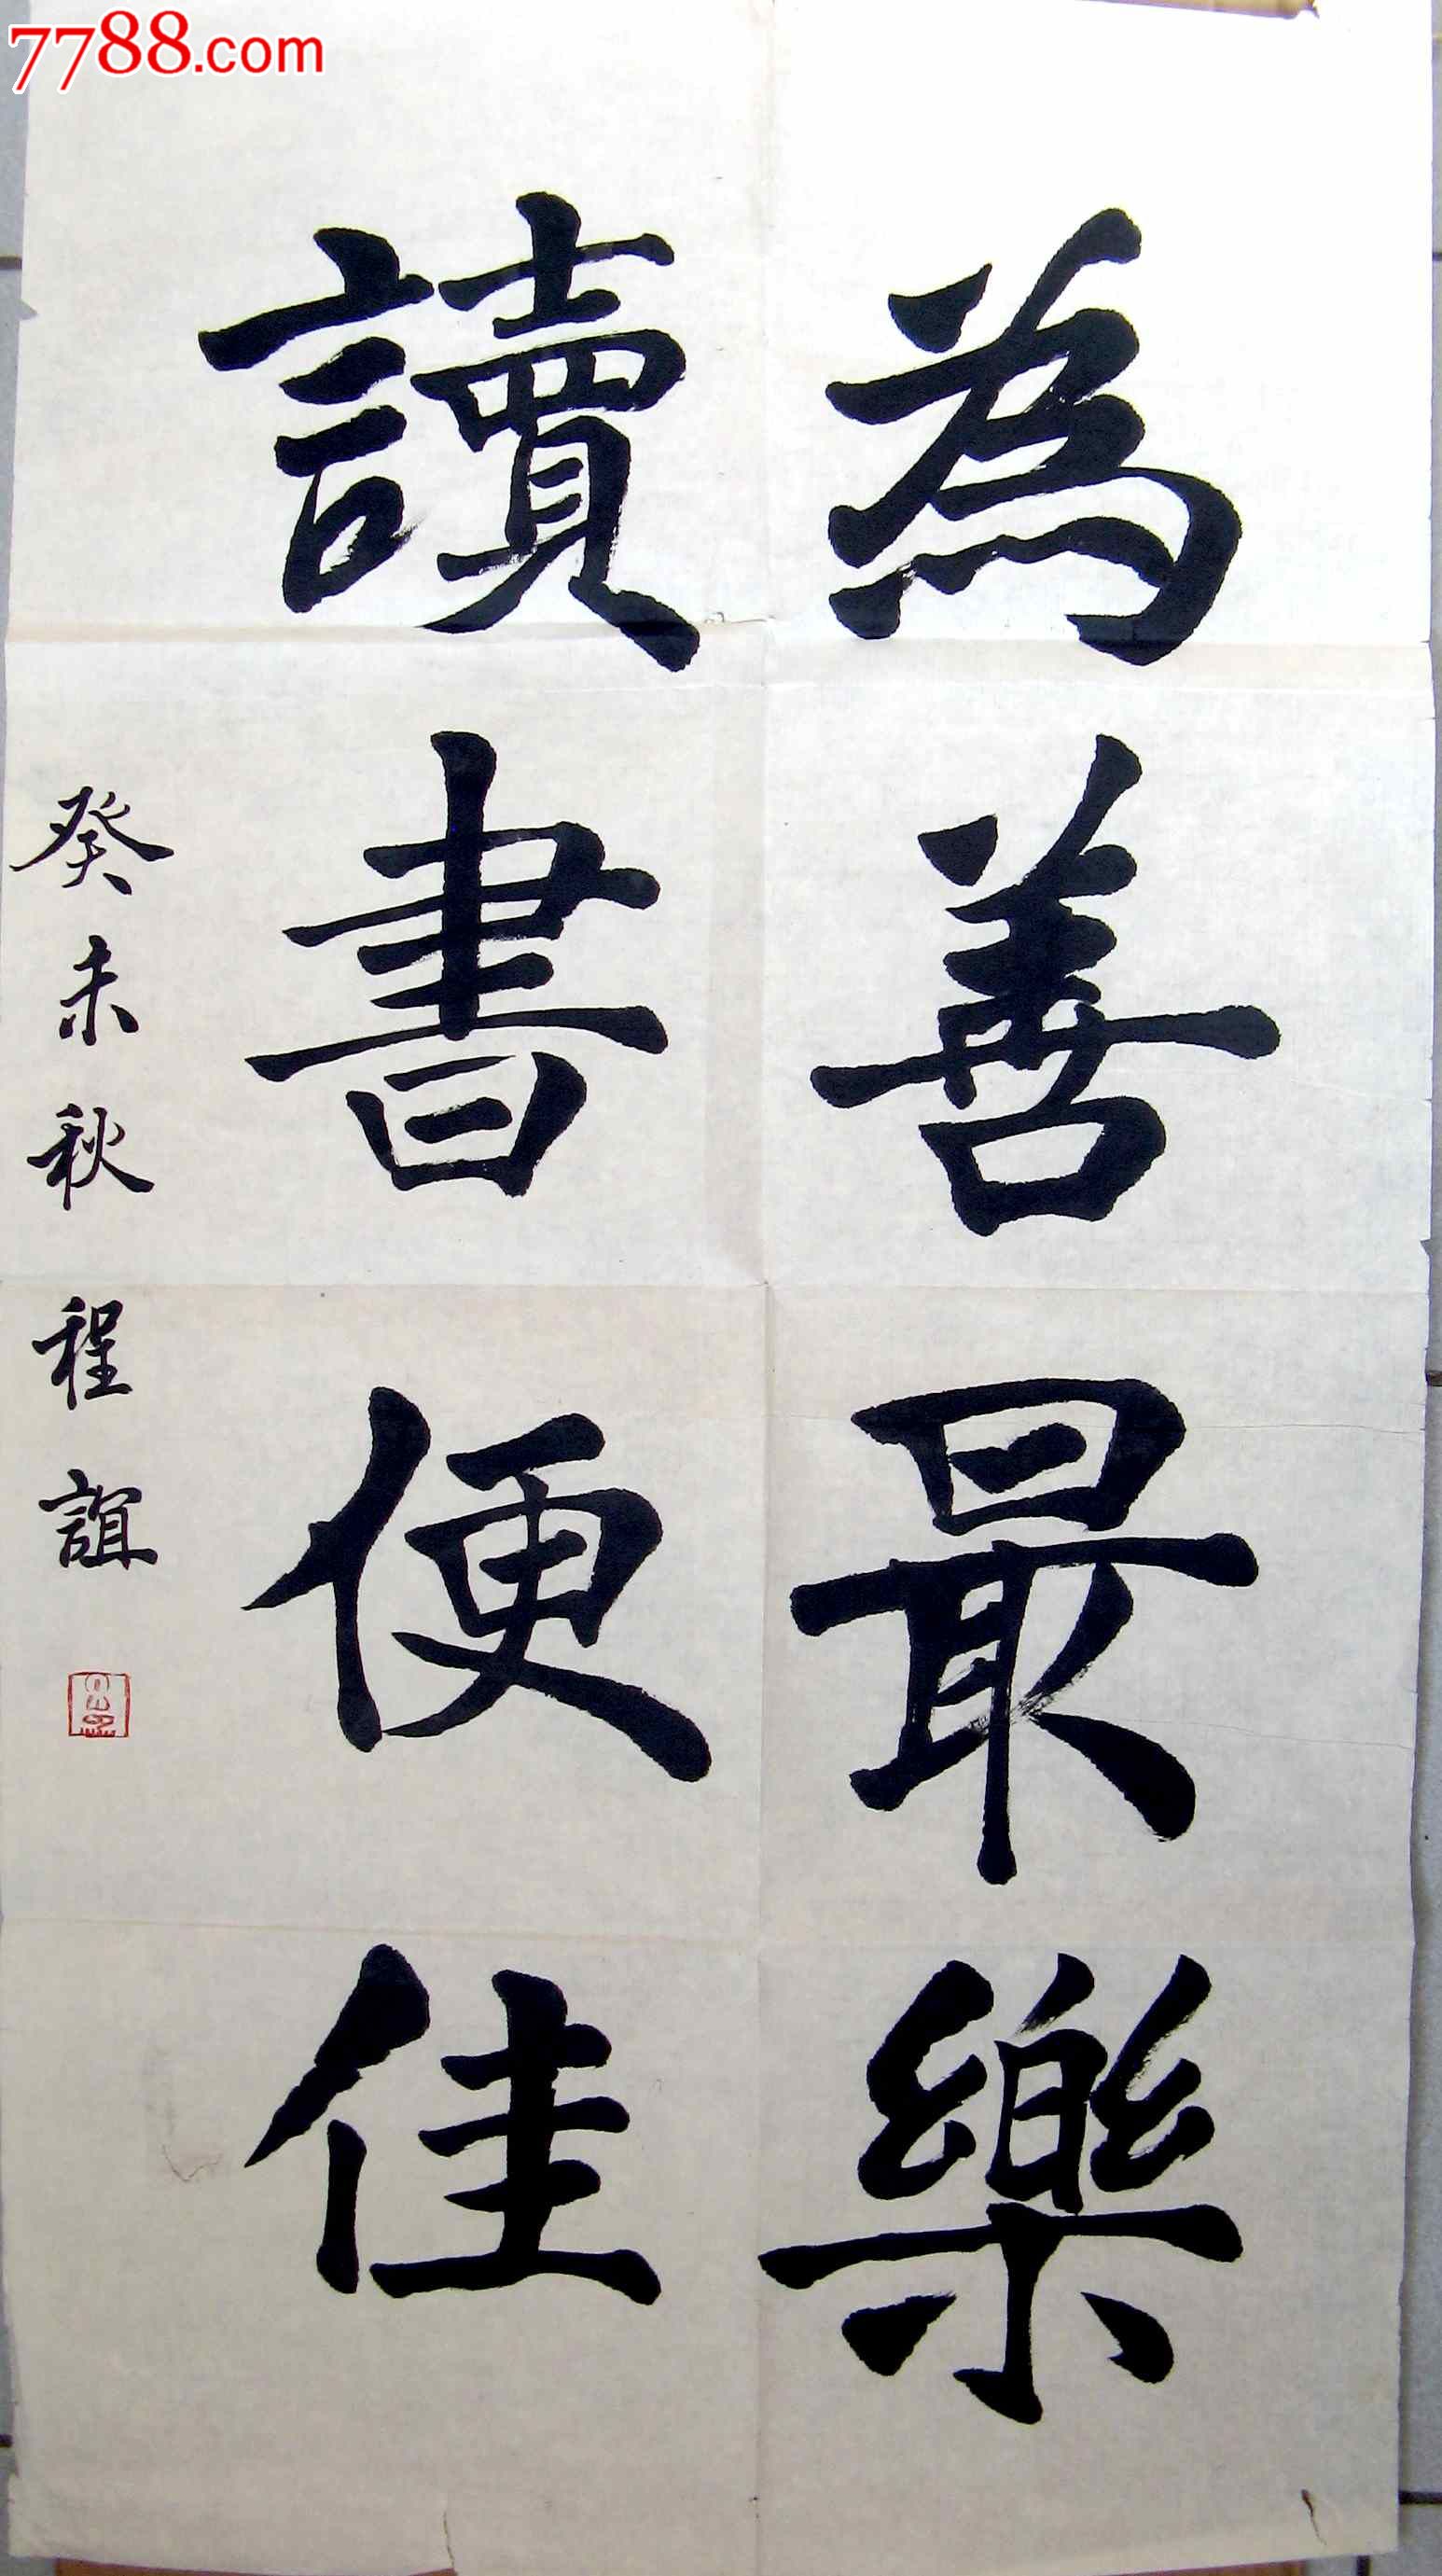 7788.com
為善最樂
讀書便佳
癸未秋 程誼